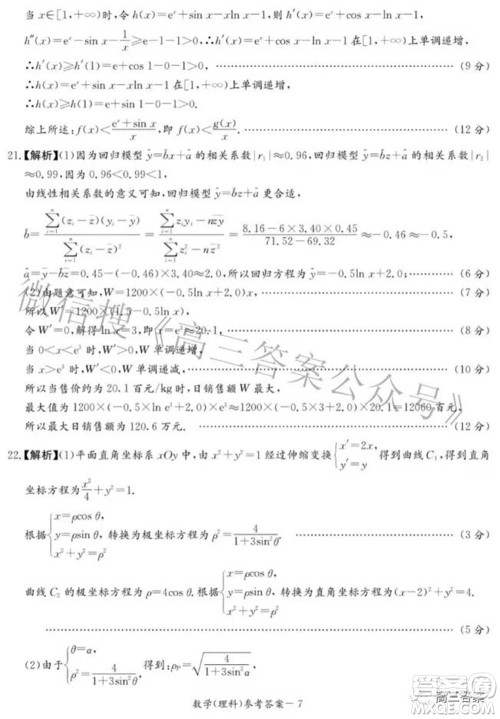 当 x∈[1,+∞)时,令 h(x)=eˣ+sin x-xln x-1,则 h′(x)=eˣ+cos x-ln x-1,
h″(x)=eˣ-sin x-1/x≥e-1-1>0,∴h′(x)在[1,+∞)上单调递增,
∴h′(x)≥h′(1)=e+cos 1-1>0, (9 分)
∴h(x)=eˣ+sin x-xln x-1 在[1,+∞)上单调递增,
∴h(x)≥h(1)=e+sin 1-0-1>0,
综上所述:f(x)<(eˣ+sin x)/x,即 f(x)<g(x)/x. (12 分)
21.【解析】(1)因为回归模型 ŷ=b̂x+â 的相关系数|r₁|≈0.96,回归模型 ŷ=b̂z+â 的相关系数|r₂|
≈0.99,因为 0.96<0.99<1,
由线性相关系数的意义可知,回归模型 ŷ=b̂z+â 更合适,
b̂=∑(zᵢ-z̄)(yᵢ-ȳ)/∑(zᵢ-z̄)²=(∑zᵢyᵢ-nz̄ȳ)/(∑zᵢ²-nz̄²)=(8.16-6×3.40×0.45)/(71.52-69.32)≈-0.46≈-0.5,
â=ȳ-b̂z̄=0.45-(-0.46)×3.40≈2.0,所以回归方程为 ŷ=-0.5z+2.0. (6 分)
(2)由题意可知,W=1200×(-0.5ln x+2.0)x, (7 分)
所以 W′=1200×(1.5-0.5ln x),
令 W′=0,解得ln x=3,即 x=e³≈20.1, (8 分)
当 0<x<e³ 时,W′>0,W 单调递增,
当 x>e³ 时,W′<0,W 单调递减, (10 分)
所以当售价约为 20.1 百元/kg时,日销售额 W 最大,
最大值为 1200×(-0.5ln e³+2)×e³≈1200×(-0.5×3+2.0)×20.1=12060 百元,
所以日销售额最大值为 120.6 万元. (12 分)
22.【解析】(1)平面直角坐标系 xOy 中,由 x²+y²=1 经过伸缩变换{x′=2x, y′=y,得到曲线 C₁,得到直角
坐标方程为x²/4+y²=1.
根据{x=ρcos θ, y=ρsin θ, x²+y²=ρ²,转换为极坐标方程为 ρ²=4/(1+3sin²θ). (3 分)
曲线 C₂ 的极坐标方程为 ρ=4cos θ,根据{x=ρcos θ, y=ρsin θ, x²+y²=ρ²,转换为直角坐标方程为 (x-2)²+y²=4.
(5 分)
(2)由于{θ=α, ρ²=4/(1+3sin²θ),得到:ρₚ=√(4/(1+3sin²α)),
数学(理科)参考答案-7
微信搜《高三答案公众号》
高三答案